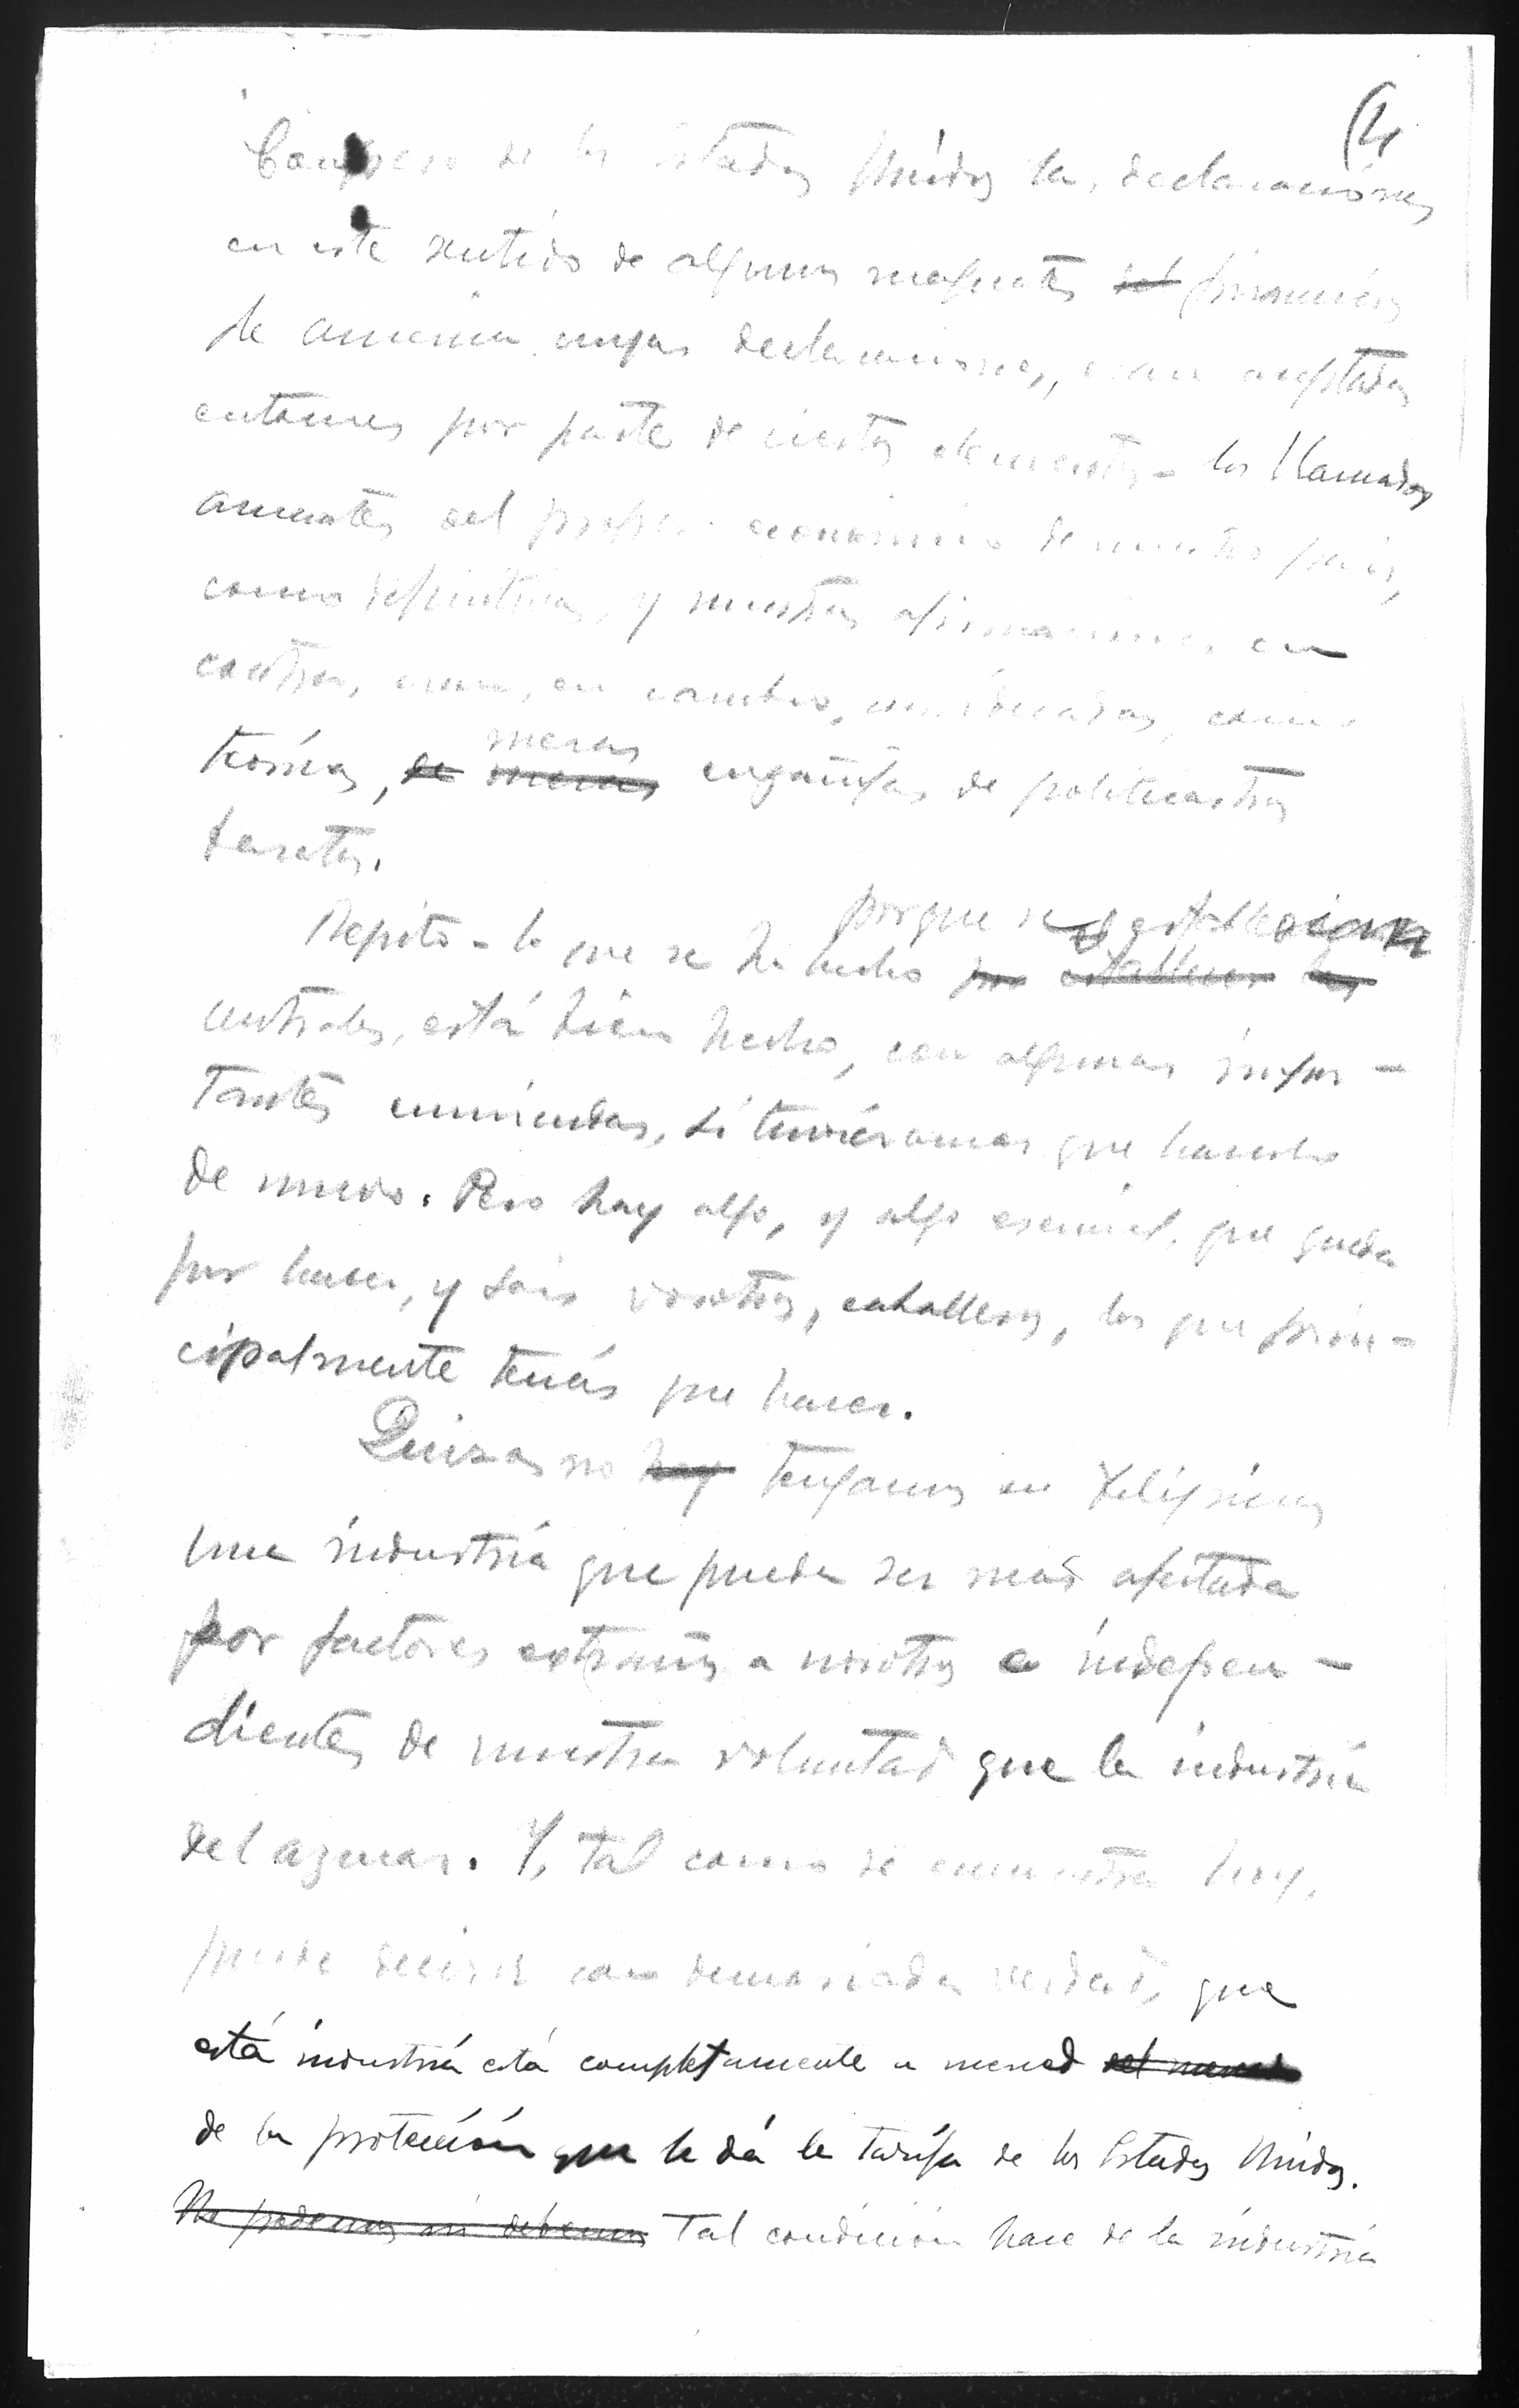 (4
Congreso de los Estados Unidos las declaraciones
en este sentido de algunos magnates del financieros
de America cuyas declaraciones, eran aceptadas
entonces por parte de ciertos elementos - los llamados
amantes del progreso economico de nuestro pais,
como definitivas, y nuestras afirmaciones en
contra, eran, en cambio, consideradas, como
meras
teorías, de meras engañifas de politicastros
baratos.
porque se establecieran
Repito - lo que se ha hecho por establecer las
centrales, está bien hecho, con algunas impor-
tantes enmiendas, si tuviéramos que hacerlo
de nuevo. Pero hay algo, y algo esencial, que queda
por hacer, y sois vosotros, caballeros, los que prin-
cipalmente teneis que hacer.
Quizas no hay tengamos en Filipinas
una industria que pueda ser mas afectada
por factores extraños a nosotros e indepen-
dientes de nuestra voluntad que la industria
del azucar. Y, tal como se encuentra hoy,
puede decirse con demasiada verdad, que
está industria está completamente a merced del mercado
de la protección que le dá la tarifa de los Estados Unidos.
No podemos ni debemos Tal condición hace de la industria